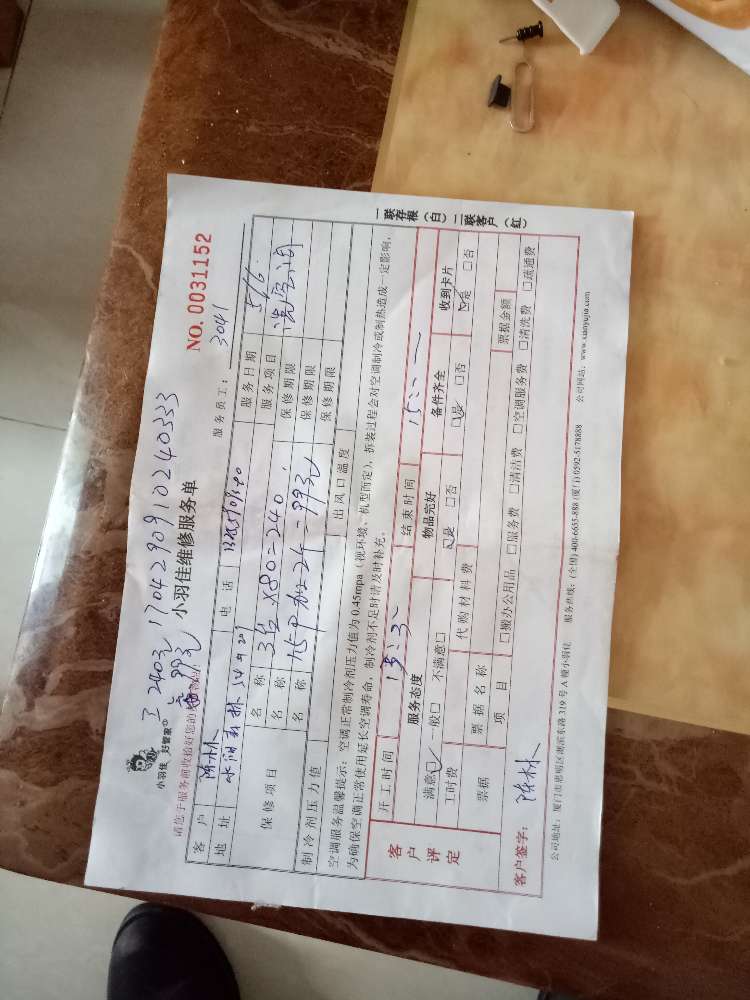 工 240元 17042909102240333
高 993元
小羽佳 好管家®
小羽佳维修服务单
NO. 0031152
请您于服务前收拾好您的
服务员工： 3041
客户 陈林 电话 服务日期 5/6
地址 服务项目 洗空调
保修项目 名称 3台×80=240 保修期限
名称 保修期限
名称 保修期限
制冷剂压力值 出风口温度
空调服务温馨提示：空调正常制冷剂压力值为 0.45mpa（视环境、机型而定），拆装过程会对空调制冷或制热造成一定影响，
为确保空调正常使用延长空调寿命，制冷剂不足时请及时补充。
客户评定
开工时间 结束时间
服务态度 物品完好 备件齐全 收到卡片
满意☑ 一般□ 不满意□ ☑是 □否 ☑是 □否 ☑是 □否
工时费 代购材料费
票据 票据名称 票据金额
项目 □搬办公用品 □服务费 □清洁费 □空调服务费 □清洗费 □疏通费
客户签字： 陈林
公司地址：厦门市思明区湖滨东路 319 号 A 幢小羽佳 服务热线：(全国) 400-6655-888 (厦门) 0592-5178888 公司网站：www.xiaoyujia.com
一联存根（白）二联客户（红）